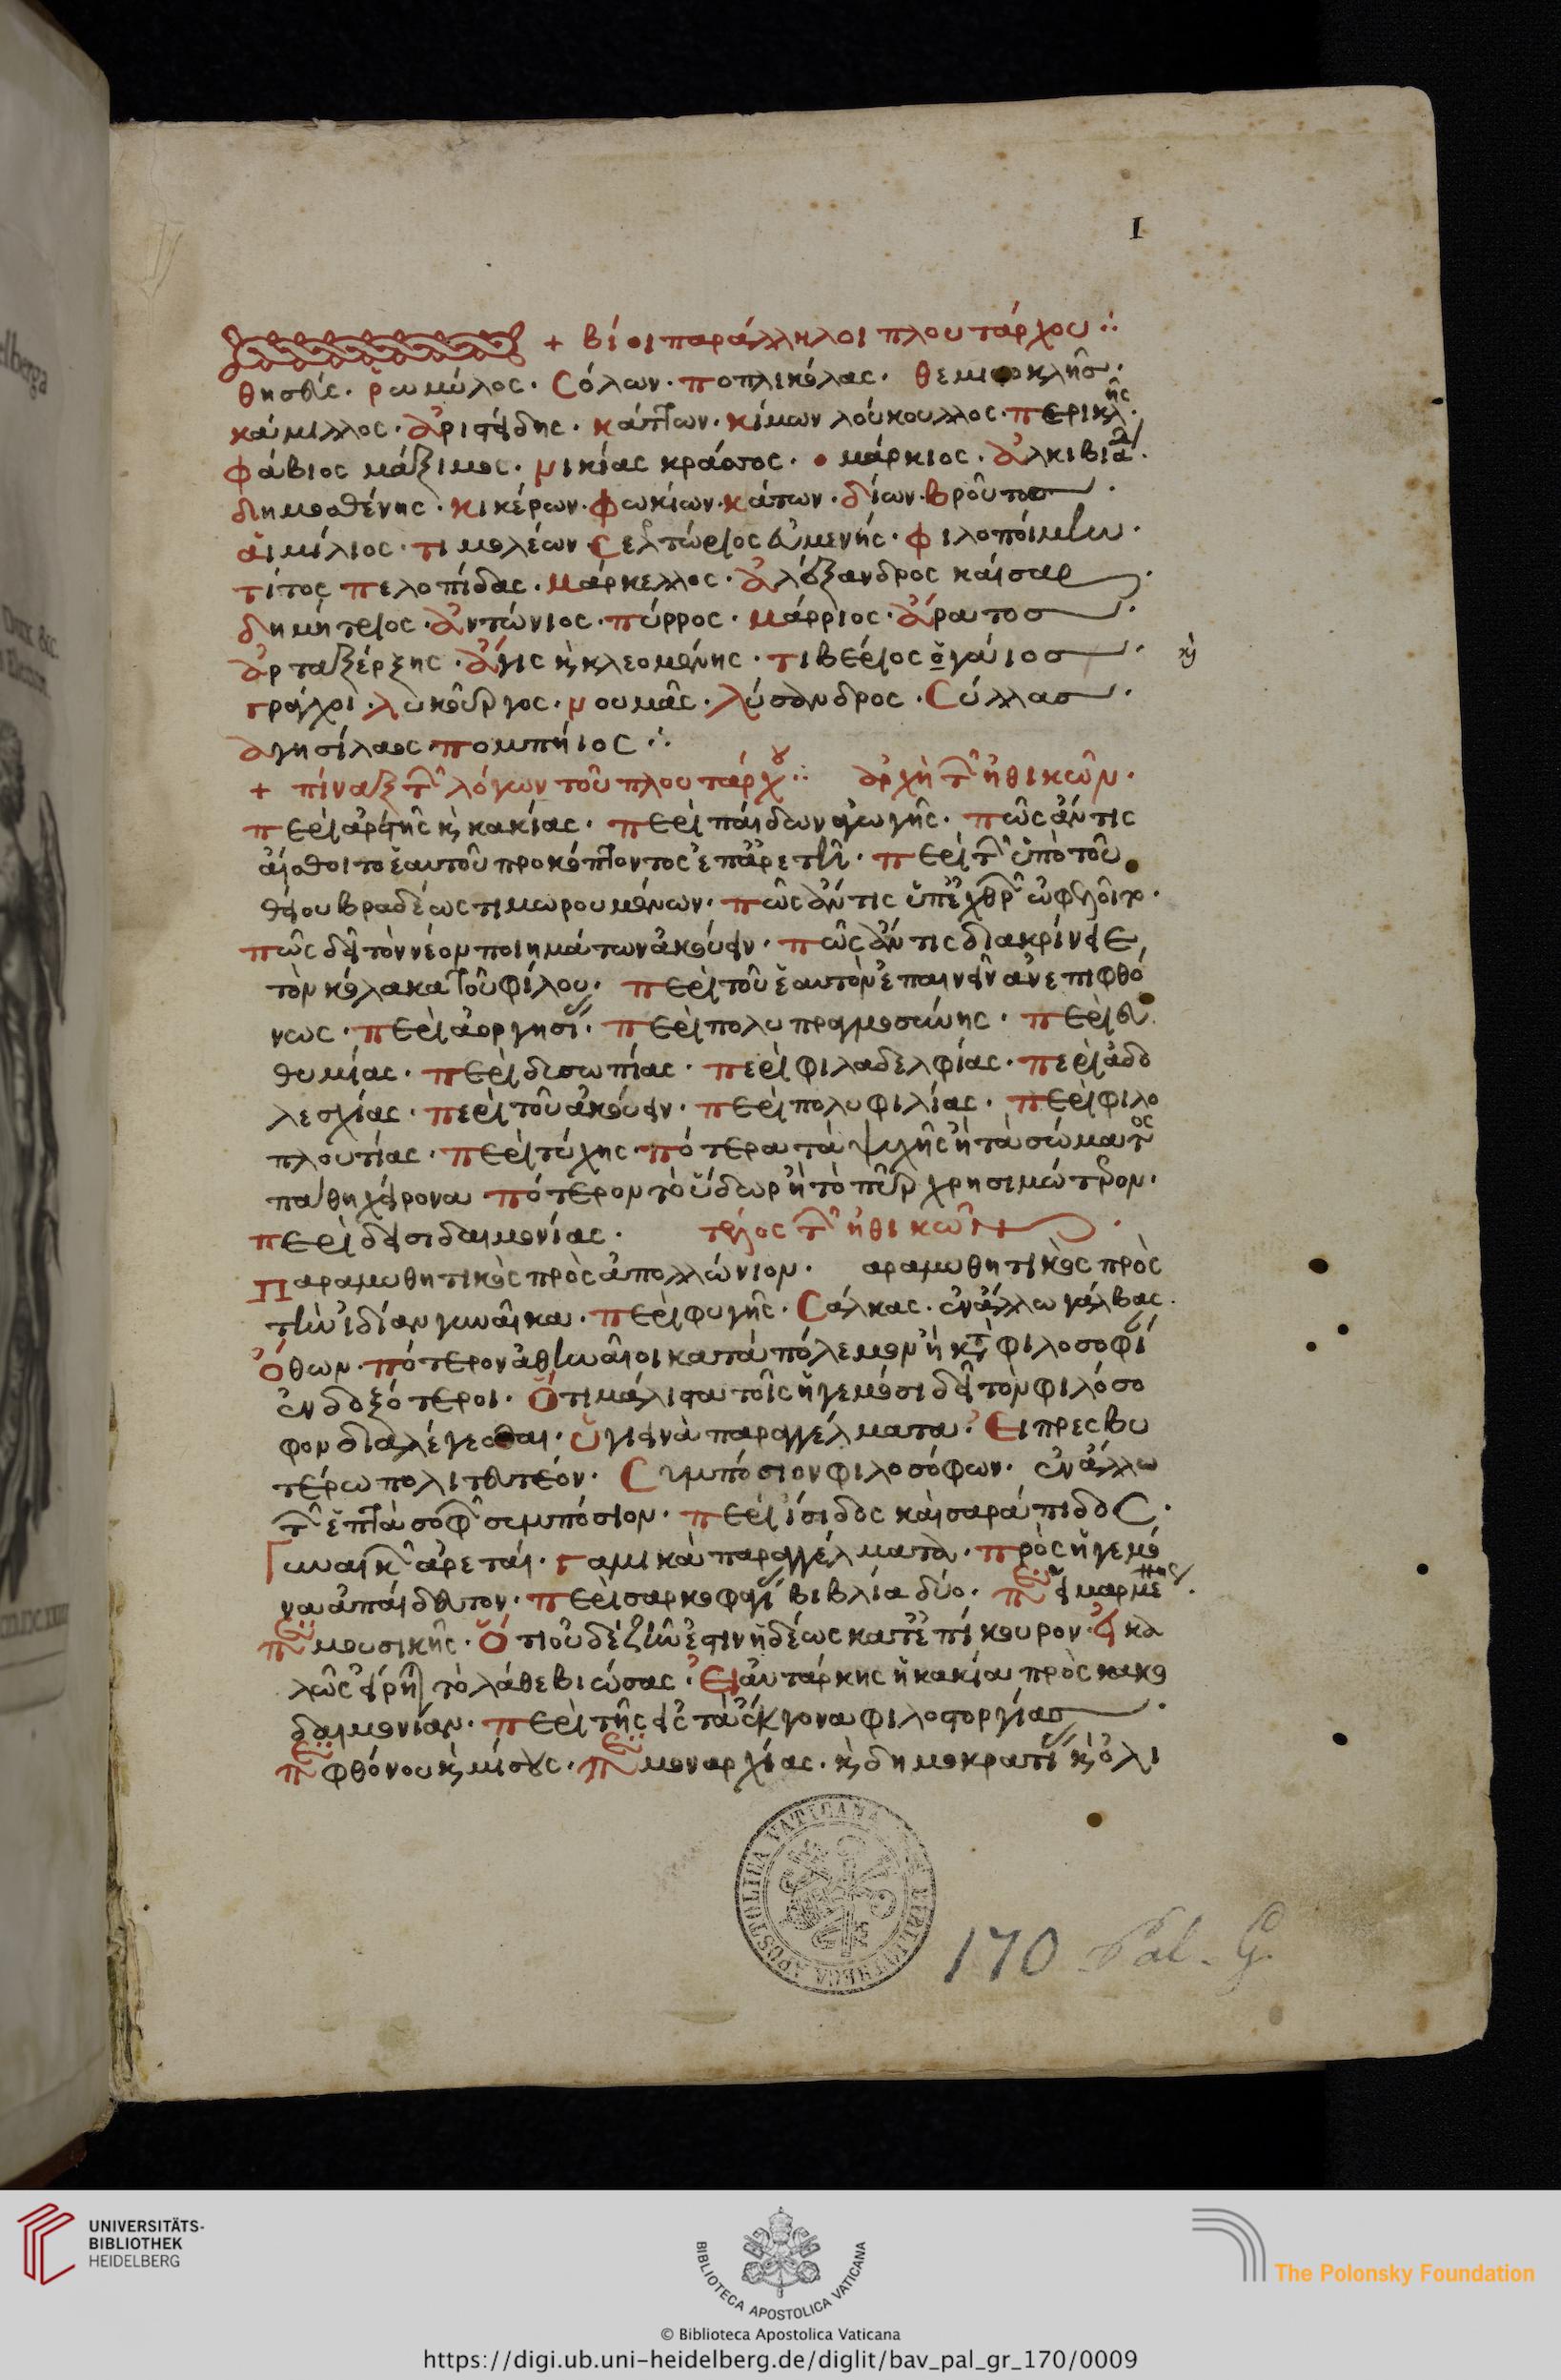 I
+ βίοι παράλληλοι πλουτάρχου ∴
θησεύς · ῥωμύλος · Σόλων · ποπλικόλας · θεμιστοκλῆσ ·
κάμιλλος · ἀριστείδης · κάττων · κίμων λούκουλλος · περικλῆς ·
φάβιος μάξιμος · νικίας κράσσος · μάρκιος · ἀλκιβιά
δημοσθένης · κικέρων · φωκίων · κάτων · δίων · βροῦτοσ ·
αἰμίλιος · τιμολέων Σερτώριος εὐμενής · φιλοποίμην ·
τίτος πελοπίδας · μάρκελλος · ἀλέξανδρος καίσαρ ·
δημήτριος · ἀντώνιος · πύρρος · μάρριος · ἄρατοσ ·
ἀρταξέρξης · ἄγις κ κλεομένης · τιβέριος ὁ γάιοσ ·
κ
γράγχοι · λυκοῦργος · νουμᾶς · λύσανδρος · Σύλλασ ·
ἀγησίλαος πομπήιος ∴
+ πίναξ τ λόγων τοῦ πλουτάρχου ∴ ἀρχὴ τ ἠθικῶν ·
περὶ ἀρετῆς κ κακίας · περὶ παίδων ἀγωγῆς · πῶς ἄν τις
αἴσθοιτο ἑαυτοῦ προκόπτοντος ἐπ ἀρετῆ · περὶ τ ὑπὸ τοῦ
θείου βραδέως τιμωρουμένων · πῶς ἄν τις ὑπ ἐχθρ ὠφελοῖτο ·
πῶς δεῖ τὸν νέον ποιημάτων ἀκούειν · πῶς ἄν τις διακρίνειε
τὸν κόλακα τοῦ φίλου · περὶ τοῦ ἑαυτὸν ἐπαινεῖν ἀνεπιφθό
νως · περὶ ἀοργησί · περὶ πολυπραγμοσύνης · περὶ εὐ
θυμίας · περὶ δισωπίας · περὶ φιλαδελφίας · περὶ ἀδο
λεσχίας · περὶ τοῦ ἀκούειν · περὶ πολυφιλίας · περὶ φιλο
πλουτίας · περὶ τύχης · πότερα τὰ ψυχῆς ἢ τὰ σώματος
πάθη χείρονα πότερον τὸ ὕδωρ ἢ τὸ πῦρ χρησιμώτερον ·
περὶ δεισιδαιμονίας · τέλος τ ἠθικῶν ·
Παραμυθητικὸς πρὸς ἀπολλώνιον · αραμυθητικὸς πρὸς
τὴν ἰδίαν γυναῖκα · περὶ φυγῆς · Σάλκας · ἐν ἄλλω γάλβας ·
Ὄθων · πότερον ἀθηναῖοι κατὰ πόλεμον ἢ κ τ φιλοσοφί
ἐνδοξότεροι · Ὅτι μάλιστα τοῖς ἡγεμόσι δεῖ τὸν φιλόσο
φον διαλέγεσθαι · ὑγιεινὰ παραγγέλματα · Ει πρεσβυ
τέρω πολιτευτέον · Συμπόσιον φιλοσόφων · ἐν ἄλλω
τ ἑπτὰ σοφ συμπόσιον · περὶ ἴσιδος καὶ σαράπιδος ·
Γυναικ ἀρεταί · γαμικὰ παραγγέλματα · πρὸς ἡγεμό
να ἀπαίδευτον · περὶ σαρκοφαγί βιβλία δύο · περὶ εἱμαρμένης ·
περὶ μουσικῆς · Ὅτι οὐδὲ ζῆν ἔστιν ἡδέως κατ ἐπίκουρον · Εἰ κα
λῶς εἴρηται τὸ λάθε βιώσας · Εἰ αὐτάρκης ἡ κακία πρὸς κακο
δαιμονίαν · περὶ τῆς εἰς τὰ ἔκγονα φιλοστοργίασ ·
περὶ φθόνου κ μίσους · περὶ μοναρχίας · κ δημοκρατί κ ὀλι
BIBLIOTHECA APOSTOLICA VATICANA
170 Pal. G.
UNIVERSITÄTS-
BIBLIOTHEK
HEIDELBERG
BIBLIOTECA APOSTOLICA VATICANA
The Polonsky Foundation
© Biblioteca Apostolica Vaticana
https://digi.ub.uni-heidelberg.de/diglit/bav_pal_gr_170/0009